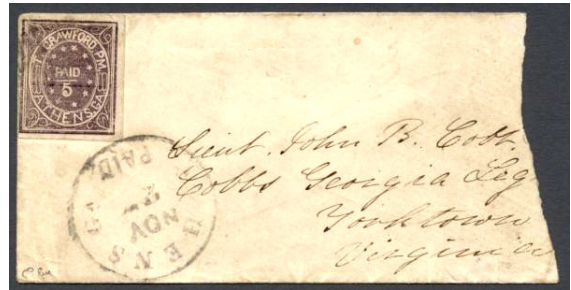 T. CRAWFORD. P.M.
PAID
5
ATHENS. GA.
PAID
NOV
HENS GA
Lieut. John B. Cobb,
Cobbs Georgia Leg
Yorktown
Virginia